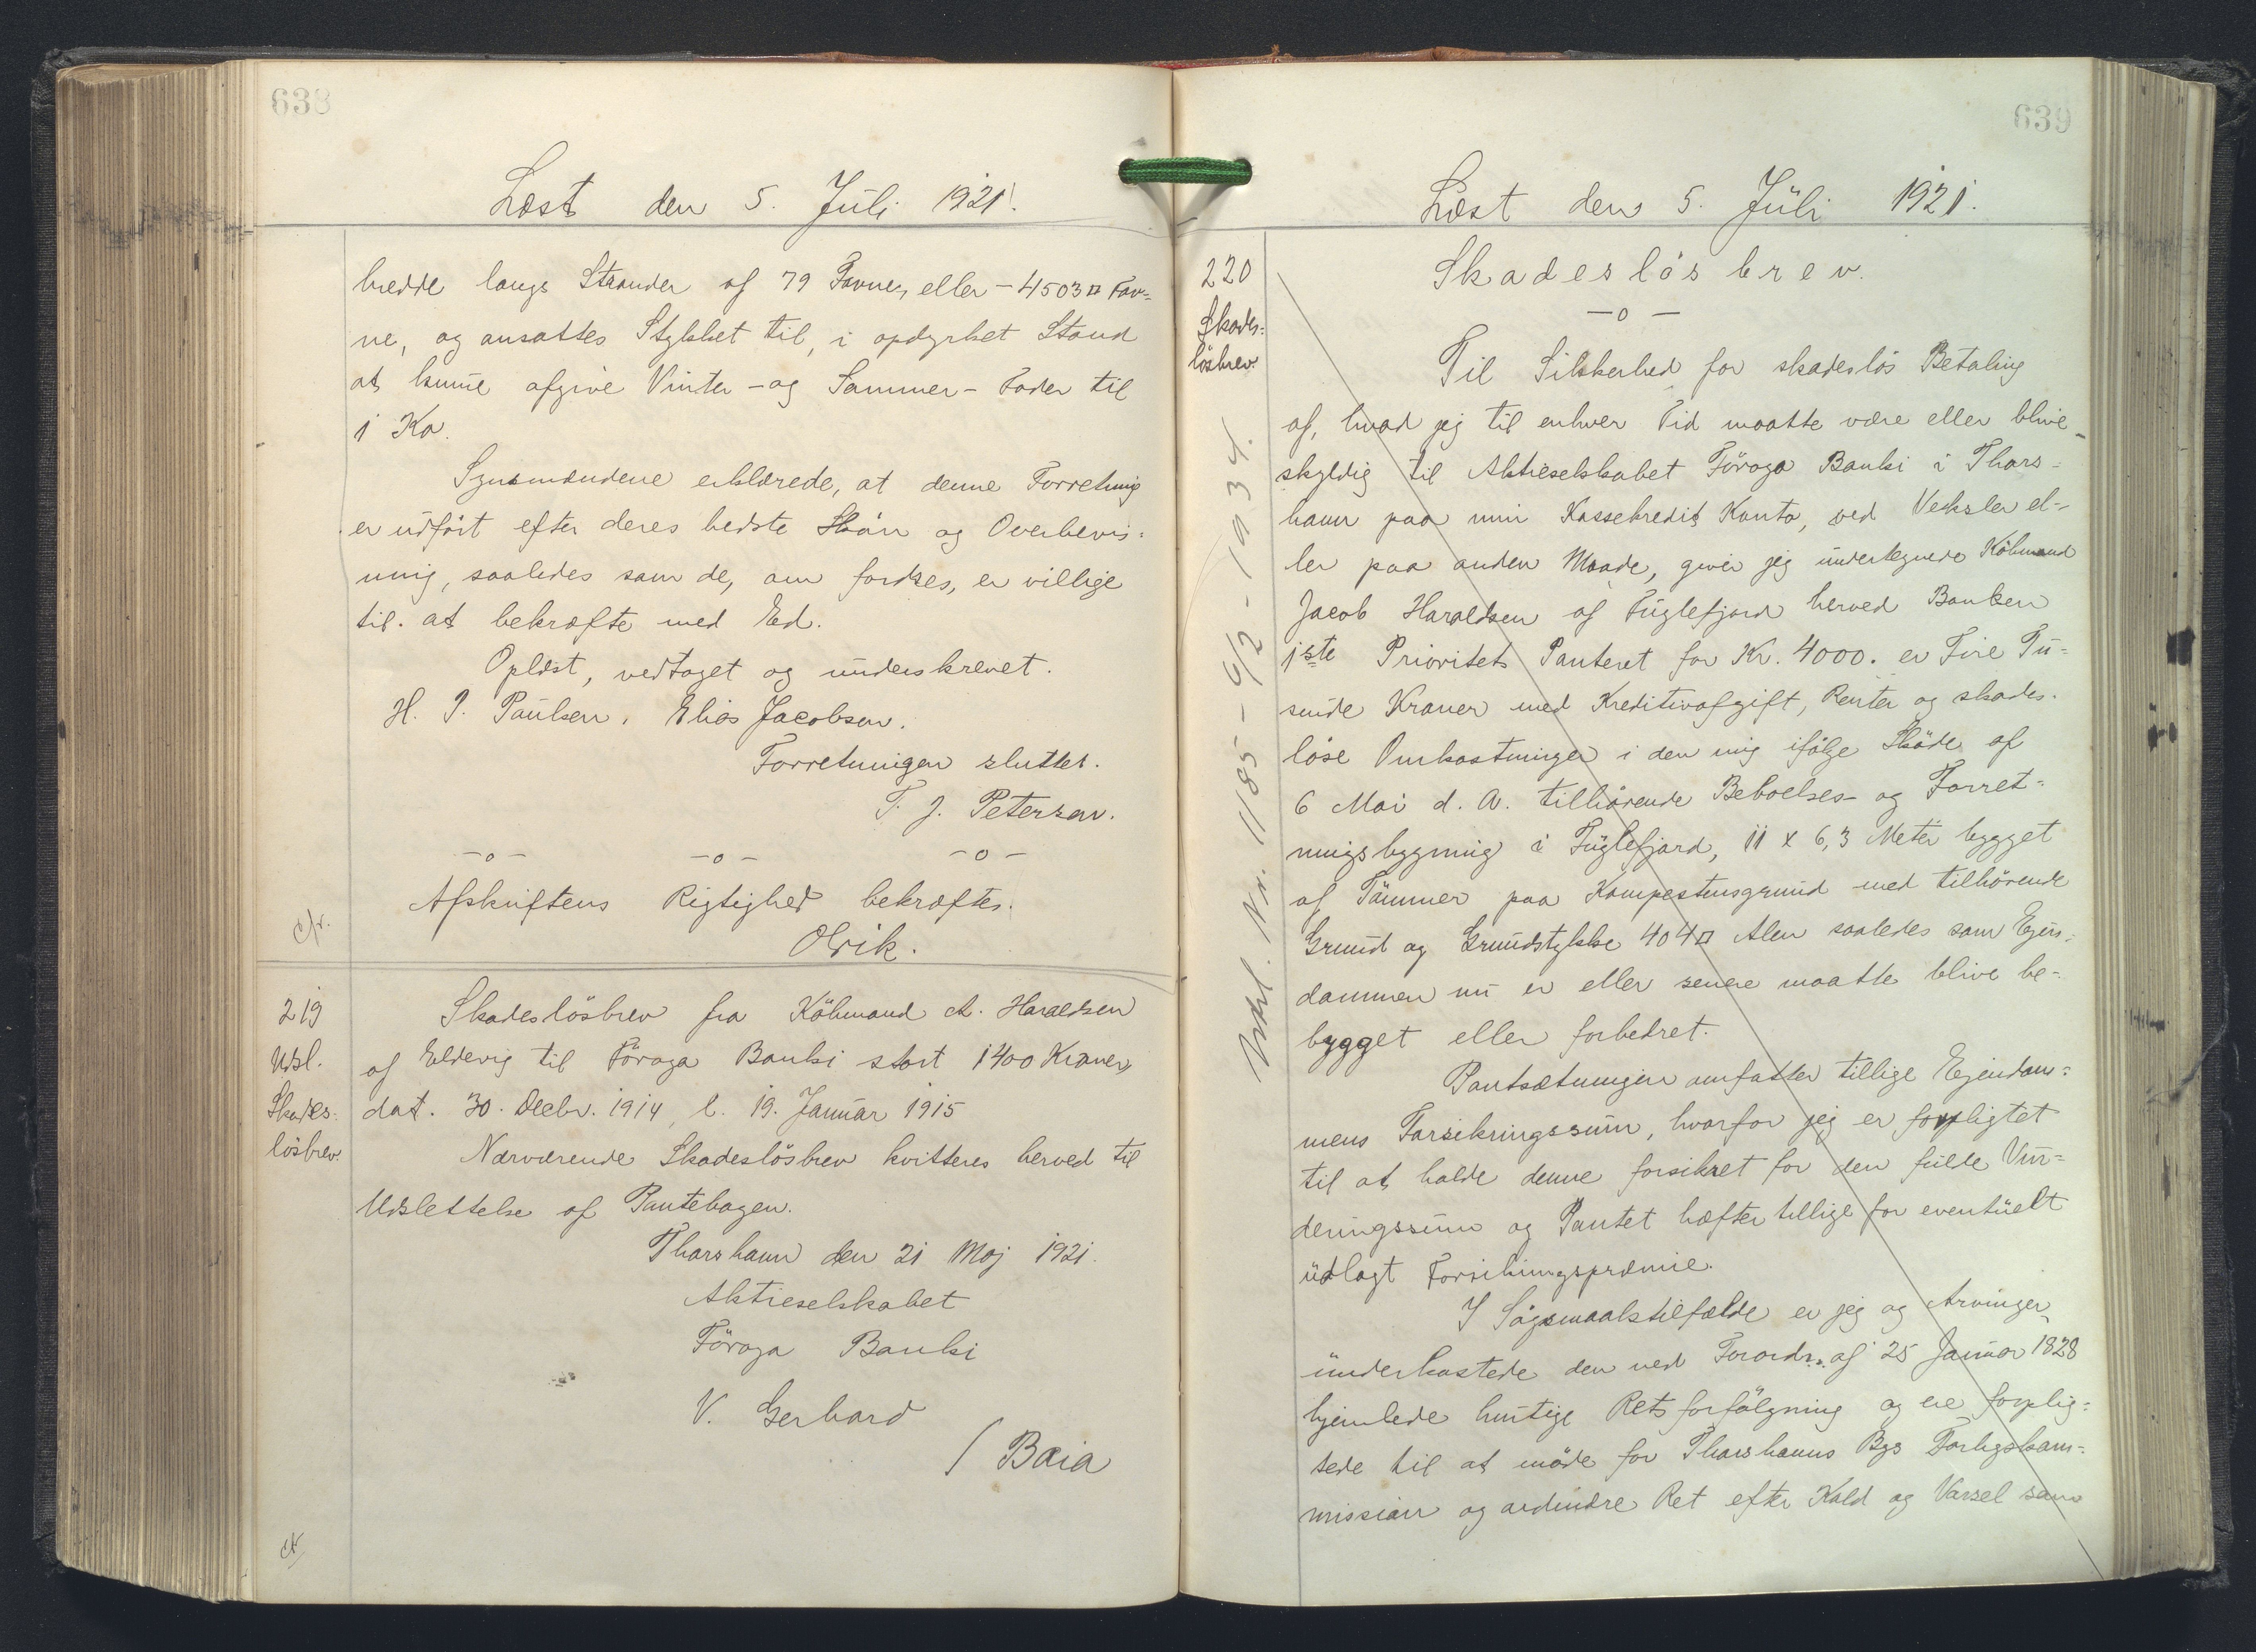 638
Læst den 5. Juli 1921.
bredde langs Stranden af 79 Favne, eller - 4503 □ Fav=
ne, og ansattes Stykket til, i opdyrket Stand
at kunne afgive Vinter - og Sommer - Foder til
1 Ko.
Synsmændene erklærede, at denne Forretning
er udført efter deres bedste Skön og Overbevis=
ning, saaledes som de, om fordres, er villige
til at bekræfte med Ed.
Oplæst, vedtaget og underskrevet.
H. P. Paulsen. Elias Jacobsen.
Forretningen sluttet.
T. J. Petersen.
-o- -o- -o-
Afskriftens Rigtighed bekræftes.
Olrik.
219
Udsl.
Skades=
lösbrev.
Skadeslösbrev fra Köbmand A. Haraldsen
af Eldevig til Föroya Banki stort 1400 Kroner,
dat. 30. Decbr. 1914, l. 19. Januar 1915
Nærværende Skadeslösbrev kvitteres herved til
Udslettelse af Pantebogen.
Thorshavn den 21 Maj 1921.
Aktieselskabet
Föroya Banki
V. Gerhard
/ Baia
639
Læst den 5. Juli 1921.
220
Skades=
lösbrev.
Udsl. Nr. 1185 - 4/2 - 1934.
Skadeslösbrev.
-o-
Til Sikkerhed for skadeslös Betaling
af, hvad jeg til enhver Tid maatte være eller blive
skyldig til Aktieselskabet Föroya Banki i Thors=
havn paa min Kassekredit Konto, ved Veksler el=
ler paa anden Maade, giver jeg undertegnede Köbmand
Jacob Haraldsen af Fuglefjord herved Banken
1ste Prioritets Panteret for Kr. 4000. er Fire Tu=
sinde Kroner med Kreditivafgift, Renter og skades=
löse Omkostninger i den mig ifölge Sköde af
6 Mai d. A. tilhörende Beboelses- og Forret=
ningsbygning i Fuglefjord, 11 x 6,3 Meter bygget
af Tömmer paa Kampestensgrund med tilhörende
Grund og Grundstykke 404 □ Alen saaledes som Ejen=
dommen nu er eller senere maatte blive be=
bygget eller forbedret.
Pantsætningen omfatter tillige Ejendom=
mens Forsikringssum, hvorfor jeg er forpligtet
til at holde denne forsikret for den fulde Vur=
deringssum og Pantet hæfter tillige for eventuelt
udlagt Forsikringspræmie.
I Sögsmaalstilfælde er jeg og Arvinger
underkastede den ved Forordn. af 25 Januar 1828
hjemlede hurtige Retsforfölgning og ere forplig=
tede til at möde for Thorshavns Bys Forligskom=
mission og ordinære Ret efter Kald og Varsel som